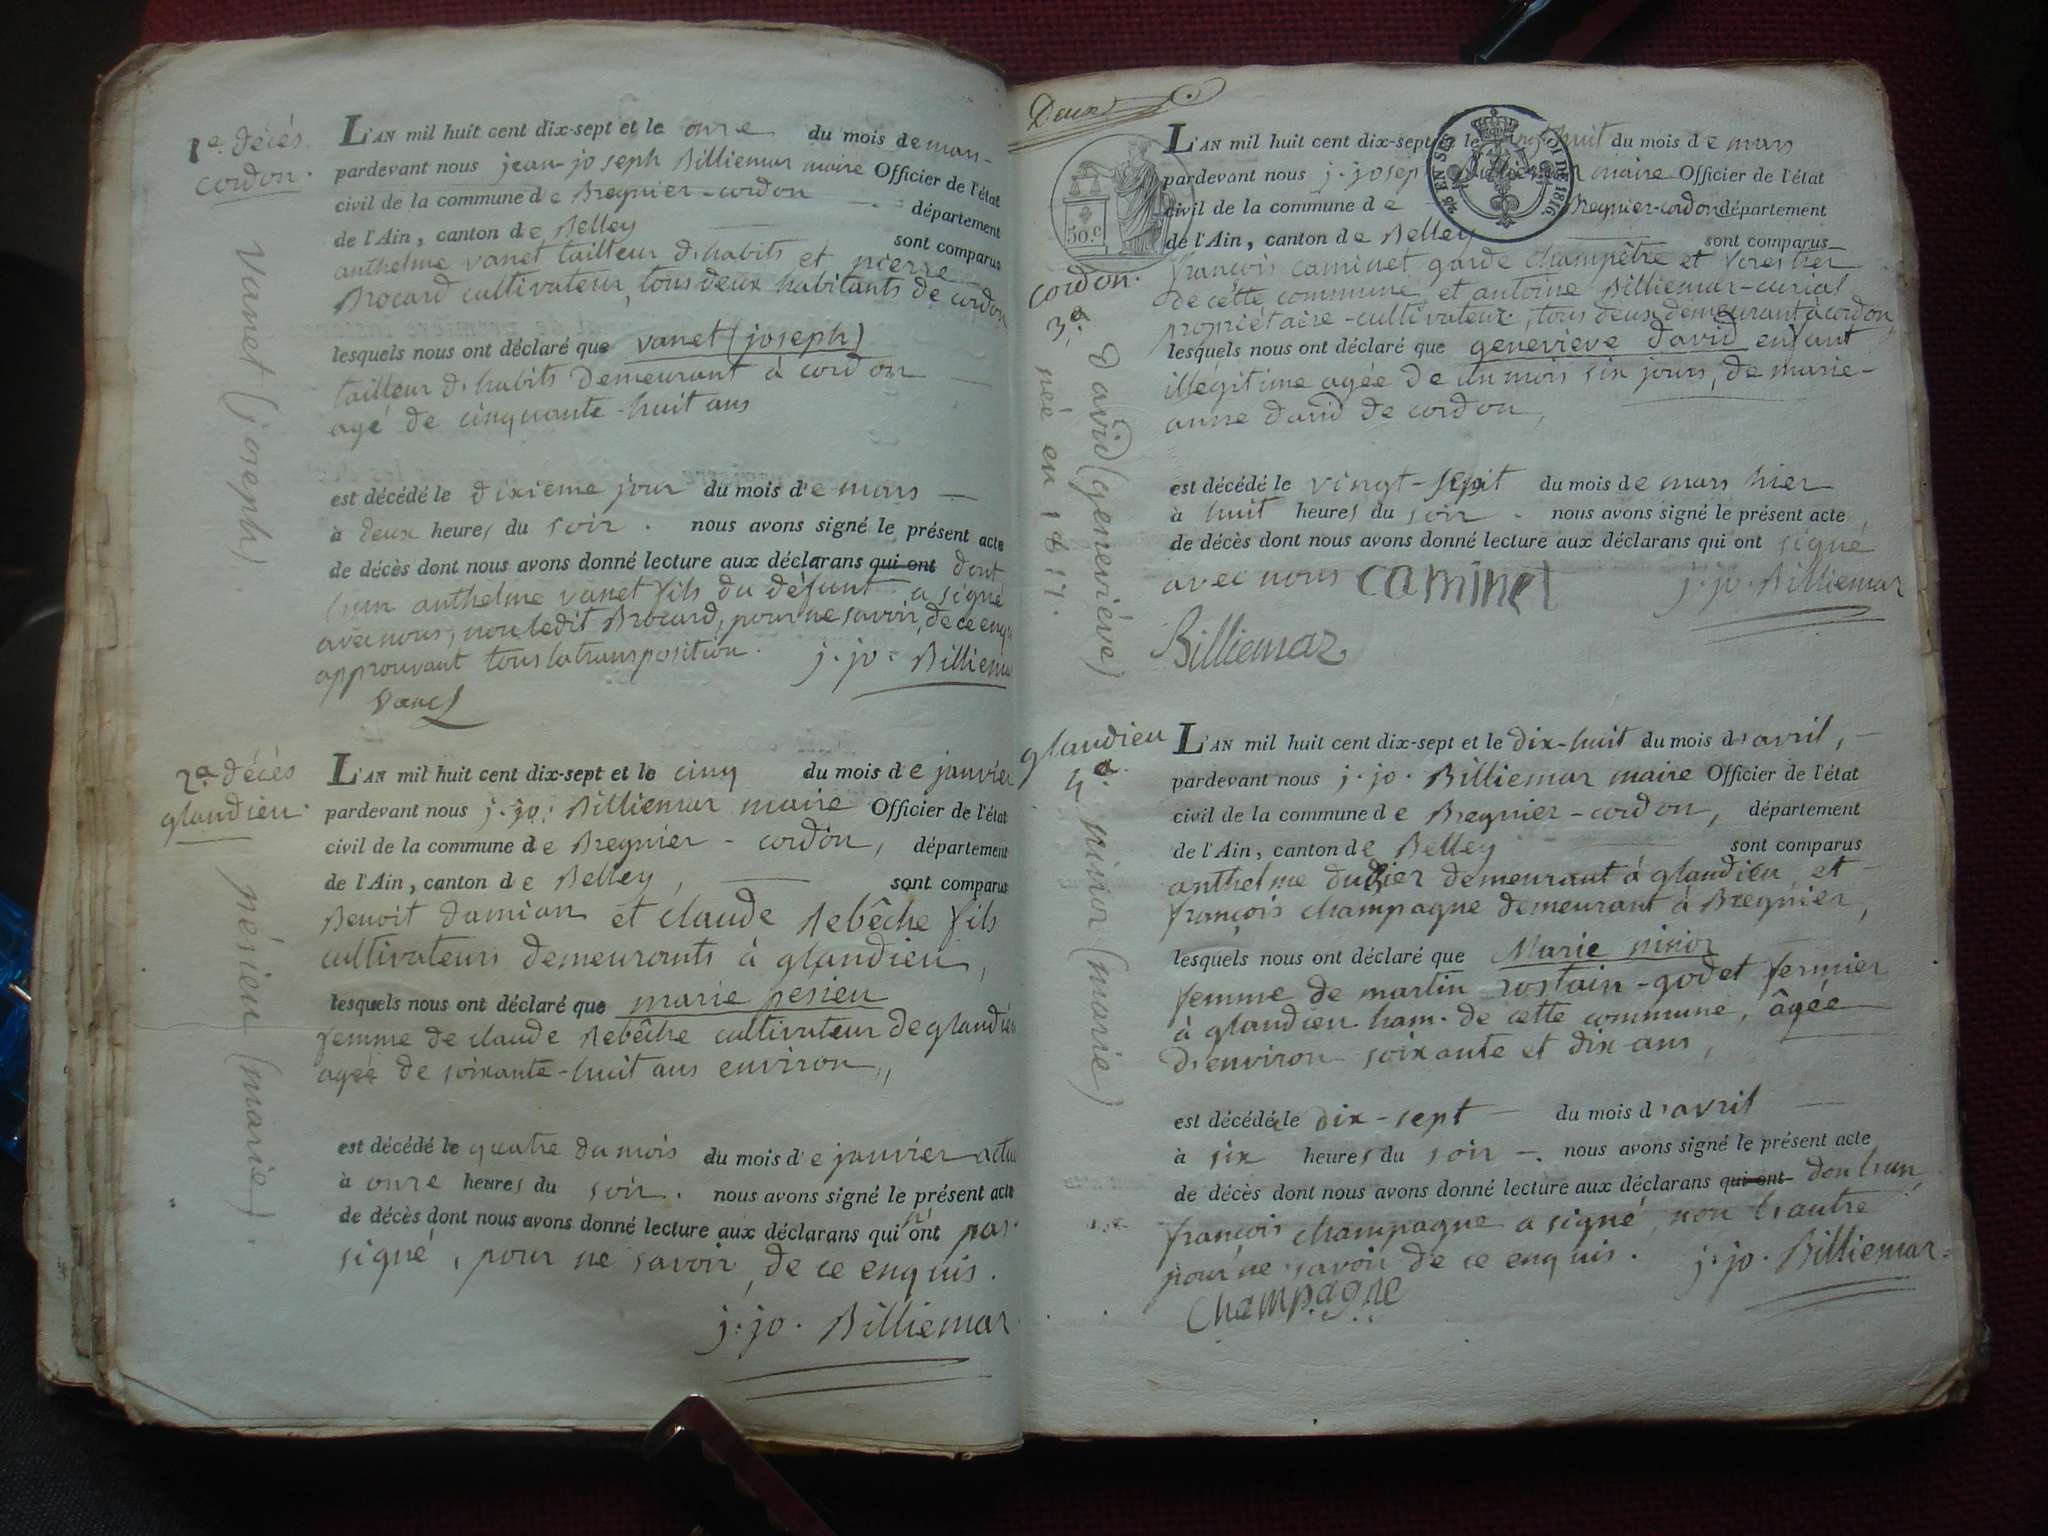 1.e décès.
cordon.
vanet (joseph)
L'AN mil huit cent dix-sept et le onze du mois de mars
pardevant nous jean-joseph Billiemaz maire Officier de l'état
civil de la commune de Bregnier-cordon département
de l'Ain, canton de Belley sont comparus
anthelme vanet tailleur d'habits et pierre
Brocard cultivateur, tous deux habitants de cordon
lesquels nous ont déclaré que vanet (joseph)
tailleur d'habits demeurant à cordon
agé de cinquante-huit ans
est décédé le dixième jour du mois de mars
à deux heures du soir. nous avons signé le présent acte
de décès dont nous avons donné lecture aux déclarans qui ont dont
l'un anthelme vanet fils du défunt a signé
avec nous, non ledit Brocard, pour ne savoir, de ce enqu
approuvant tous la transposition. j. jo. Billiema
Vanet
2.e décès
glandieu.
pésieu (marie)
L'AN mil huit cent dix-sept et le cinq du mois de janvier
pardevant nous j. jo. Billiemaz maire Officier de l'état
civil de la commune de Bregnier-cordon, département
de l'Ain, canton de Belley, sont comparus
Benoit damian et claude Rebêche fils
cultivateurs demeurants à glandieu,
lesquels nous ont déclaré que marie pesieu
femme de claude Rebêche cultivateur de glandieu
agée de soixante-huit ans environ,
est décédé le quatre du mois du mois de janvier actu
à onze heures du soir. nous avons signé le présent acte
de décès dont nous avons donné lecture aux déclarans qui n'ont pas
signé, pour ne savoir, de ce enquis.
j. jo. Billiemaz
Deux
50.c
25 EN SUS
LOI DE 1816.
cordon.
3.e
david (geneviève)
née en 1817.
L'AN mil huit cent dix-sept et le vingt huit du mois de mars
pardevant nous j. joseph Billiemaz maire Officier de l'état
civil de la commune de Bregnier-cordon département
de l'Ain, canton de Belley sont comparus
françois caminet garde champêtre et forestier
de cette commune et antoine Billiemaz-curial
propriétaire-cultivateur, tous deux demeurant à cordon
lesquels nous ont déclaré que geneviève david enfant
illégitime agée de un mois six jours, de marie-
anne david de cordon,
est décédé le vingt-sept du mois de mars hier
à huit heures du soir. nous avons signé le présent acte
de décès dont nous avons donné lecture aux déclarans qui ont signé
avec nous caminet j. jo. Billiemaz
Billiemaz
glandieu
4.e
ninioz (marie)
L'AN mil huit cent dix-sept et le dix-huit du mois d'avril,
pardevant nous j. jo. Billiemaz maire Officier de l'état
civil de la commune de Bregnier-cordon, département
de l'Ain, canton de Belley sont comparus
anthelme demeurant à glandieu et
françois champagne demeurant à Bregnier,
lesquels nous ont déclaré que Marie ninioz
femme de martin rostain-godet fermier
à glandieu ham. de cette commune, âgée
d'environ soixante et dix ans,
est décédée le dix-sept du mois d'avril
à six heures du soir. nous avons signé le présent acte
de décès dont nous avons donné lecture aux déclarans qui ont dont l'un
françois champagne a signé, non l'autre
pour ne savoir de ce enquis. j. jo. Billiemaz
Champagne